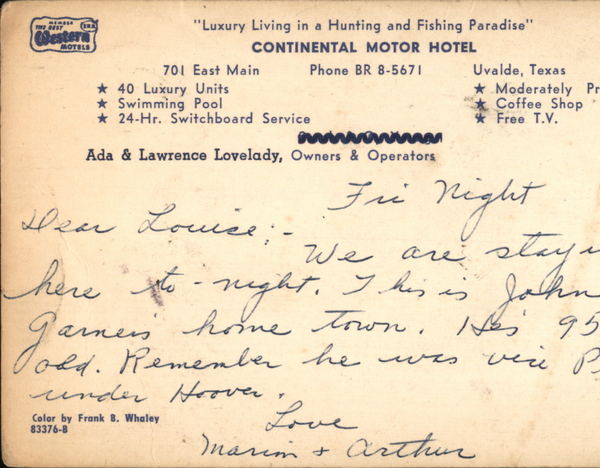 MEMBER
THE BEST
Western
MOTELS
INC
"Luxury Living in a Hunting and Fishing Paradise"
CONTINENTAL MOTOR HOTEL
701 East Main Phone BR 8-5671 Uvalde, Texas
★ 40 Luxury Units ★ Moderately Pr
★ Swimming Pool ★ Coffee Shop
★ 24-Hr. Switchboard Service ★ Free T.V.
Ada & Lawrence Lovelady, Owners & Operators
Fri Night
Dear Louise:-
We are stayi
here to-night. This is John
Garner's home town. He's 95
old. Remember he was vice P
under Hoover.
Love
Marion & Arthur
Color by Frank B. Whaley
83376-B